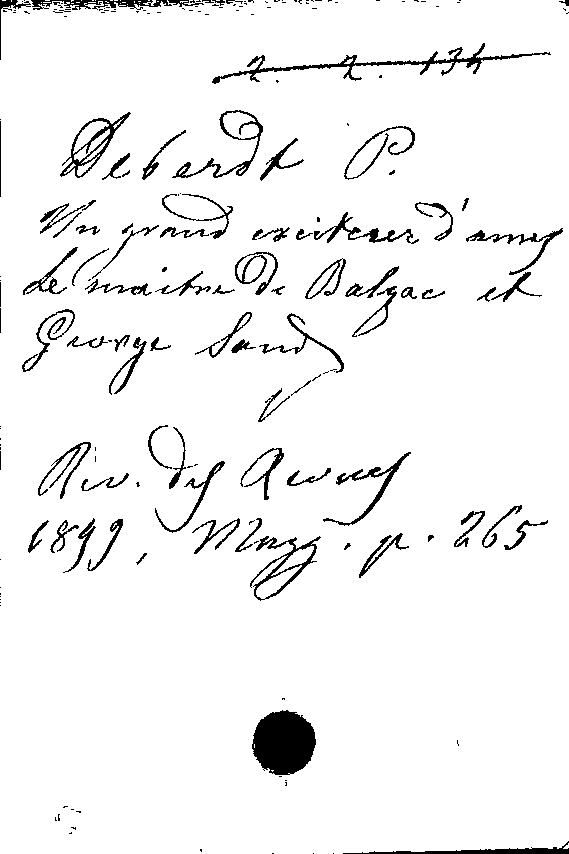 2. 2. 134
Deberdt P.
Un grand exciteur d'ames
Le maitre de Balzac et
George Sand
Riv. des Revues
1899, Magg. p. 265